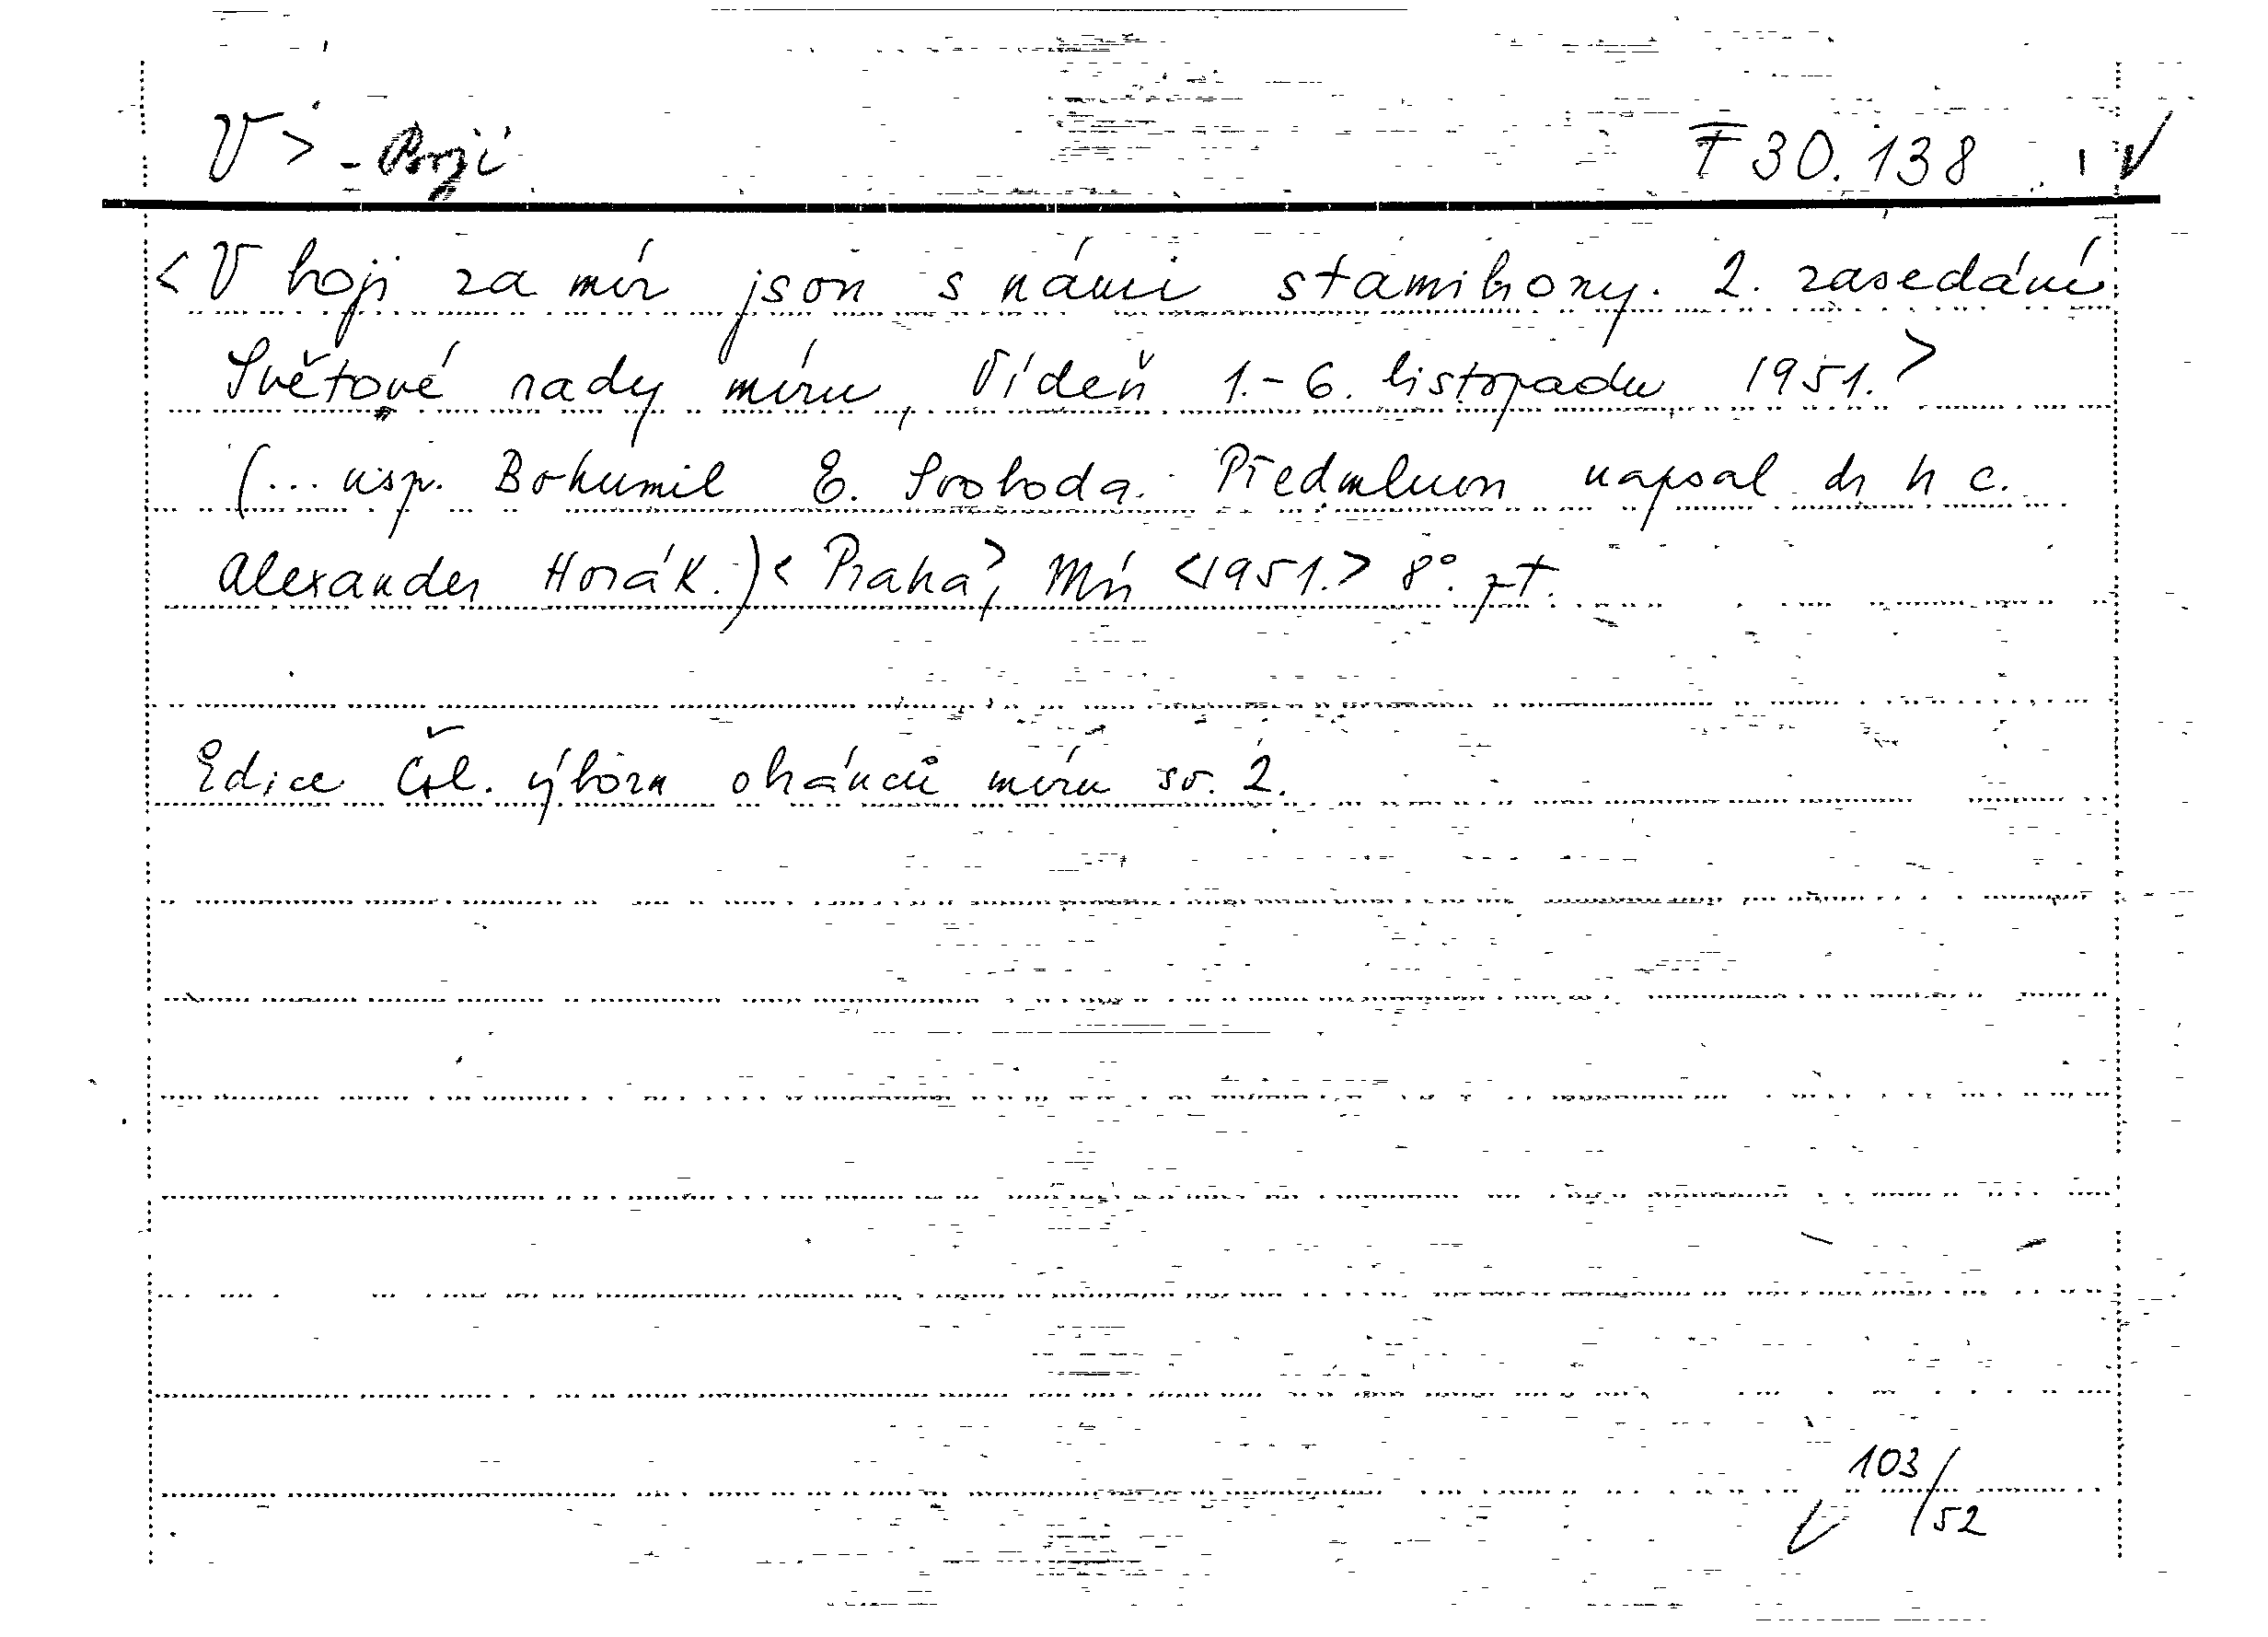 V > - Boji F 30.138
<V boji za mír jsou s námi stamiliony. 2. zasedání
Světové rady míru, Vídeň 1.-6. listopadu 1951.>
(... usp. Bohumil E. Svoboda. Předmluvu napsal dr h c.
Alexander Horák.) <Praha>, Mír <1951.> 8°.
Edice Čsl. výboru obránců míru sv. 2.
103/52